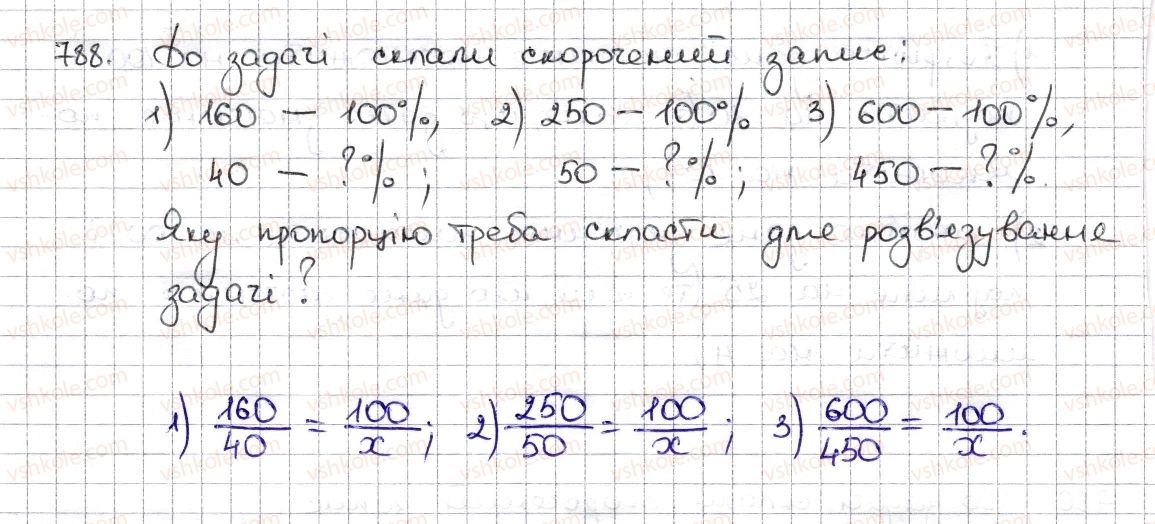 788. До задачі склали скорочений запис:
1) 160 — 100%, 2) 250 — 100% 3) 600 — 100%,
40 — ?%; 50 — ?%; 450 — ?%.
Яку пропорцію треба скласти для розв'язування
задачі?
1) 160/40 = 100/x; 2) 250/50 = 100/x; 3) 600/450 = 100/x.